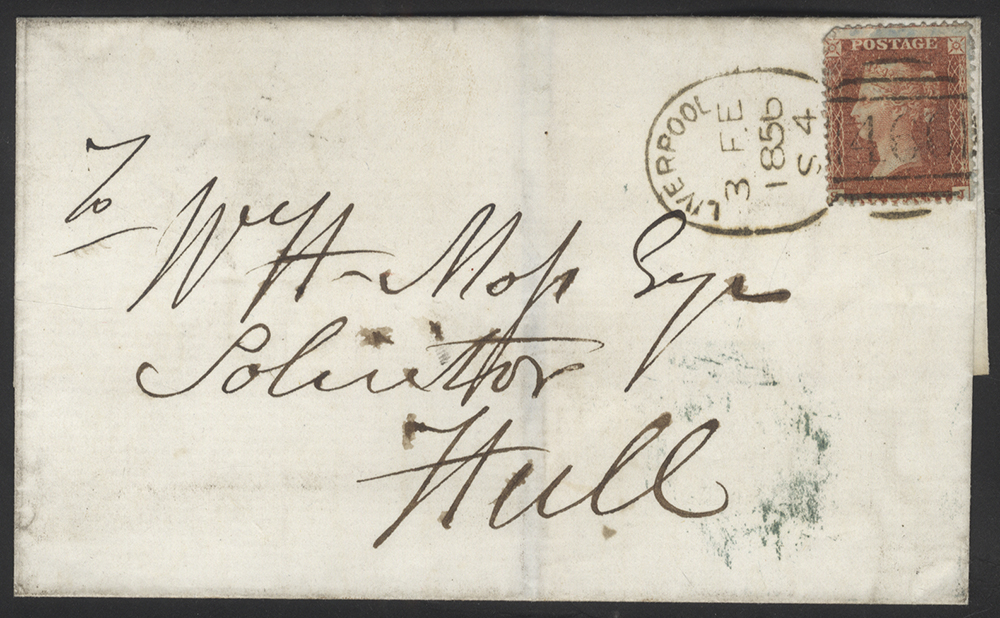 POSTAGE
LIVERPOOL
3 FE
1856
S 4
466
To
Wm H- Moss Esqr
Solicitor
Hull